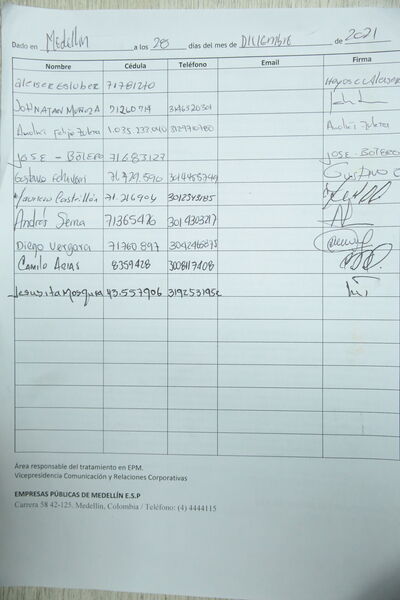 Dado en Medellin a los 28 días del mes de Diciembre de 2021
Nombre Cédula Teléfono Email Firma
71781240
JOHNATAN MUÑOZA 71260714 3146320301
Andres Felipe Zubra 1.035.232.040 3129710780 Andres Zubra
JOSE - BOTERO 71683127 JOSE - BOTERO
Gustavo Echavarri 3014455749 Gustavo E
Mauricio Castrillón 71.216904 3012343185
Andrés Serna 71365476 3014303217
Diego Vergara 71760897 304246875
CAMILO ARIAS 8359428 3008117408
Jesusita Mosquera 43.557906 3192531956
Área responsable del tratamiento en EPM.
Vicepresidencia Comunicación y Relaciones Corporativas
EMPRESAS PÚBLICAS DE MEDELLÍN E.S.P
Carrera 58 42-125. Medellín, Colombia / Teléfono: (4) 4444115